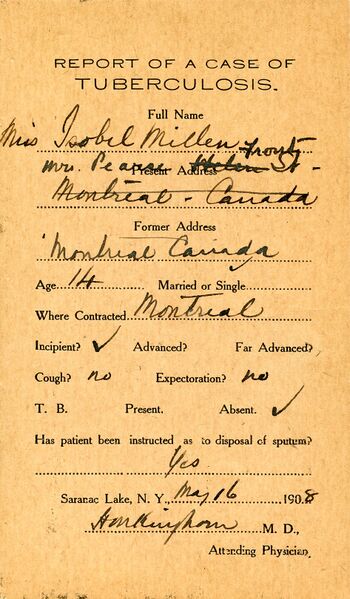 REPORT OF A CASE OF
TUBERCULOSIS.
Full Name
Miss Isobel Millen
Mrs. Pearse Helen St - Front
Present Address
Montreal - Canada
Former Address
Montreal Canada
Age 14 Married or Single
Where Contracted Montreal
Incipient? ✓ Advanced? Far Advanced?
Cough? no Expectoration? no
T. B. Present. Absent. ✓
Has patient been instructed as to disposal of sputum?
Yes
Saranac Lake, N. Y., May 16 1908
M. D.,
Attending Physician